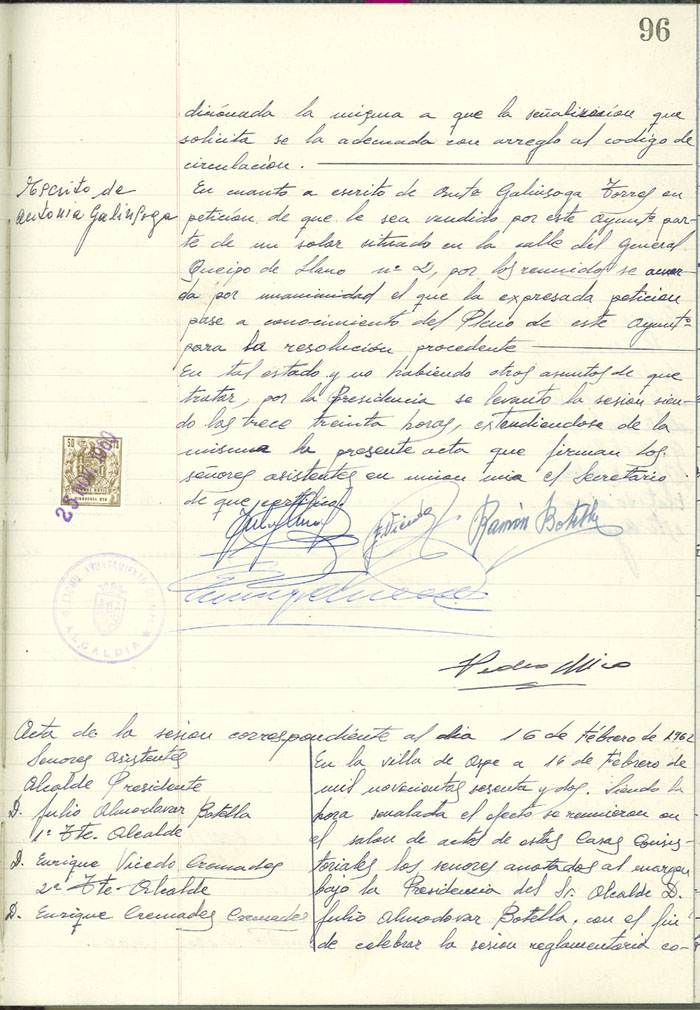 96
dicionada la misma a que la señalización que
solicita se la ademada con arreglo al codigo de
circulación.
Escrito de
Antonia Galinsoga
En cuanto a escrito de Galinsoga Torres en
petición de que le sea vendido por este Ayuntº par-
te de un solar situado en la calle del General
Queipo de Llano nº 2, por los reunidos se acuer-
da por unanimidad el que la expresada petición
pase a conocimiento del Pleno de este Ayuntº
para la resolución procedente
En tal estado y no habiendo otros asuntos de que
tratar, por la Presidencia se levanto la sesion sien-
do las trece treinta horas, extendiendose de la
misma la presente acta que firman los
señores asistentes en union mia el Secretario
de que certifico.
50 CTS
25 NOV. 1960
E. Vicedo
Ramón Botella
AYUNTAMIENTO DE
ALCALDIA
Pedro Mico
Acta de la sesion correspondiente al dia 16 de Febrero de 1962
Senores asistentes
Alcalde Presidente
D. Julio Almodovar Botella
1º Tte. Alcalde
D. Enrique Vicedo Cremades
2º Tte. Alcalde
D. Enrique Cremades Cremades
En la villa de Aspe a 16 de Febrero de
mil novecientos sesenta y dos. Siendo la
hora senalada el efecto se reunieron en
el salon de actos de estas Casas Consis-
toriales los senores anotados al margen
bajo la Presidencia del Sr. Alcalde D.
Julio Almodovar Botella, con el fin
de celebrar la sesion reglamentaria co-